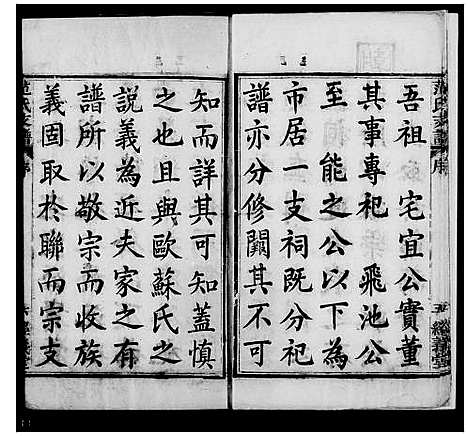 吾祖　宅宜公實董
其事專祀　飛池公
至　能之公以下為
市居一支祠既分祀
譜亦分修闕其不可
知而詳其可知蓋慎
之也且與歐蘇氏之
說義為近夫家之有
譜所以敬宗而收族
義固取於聯而宗支